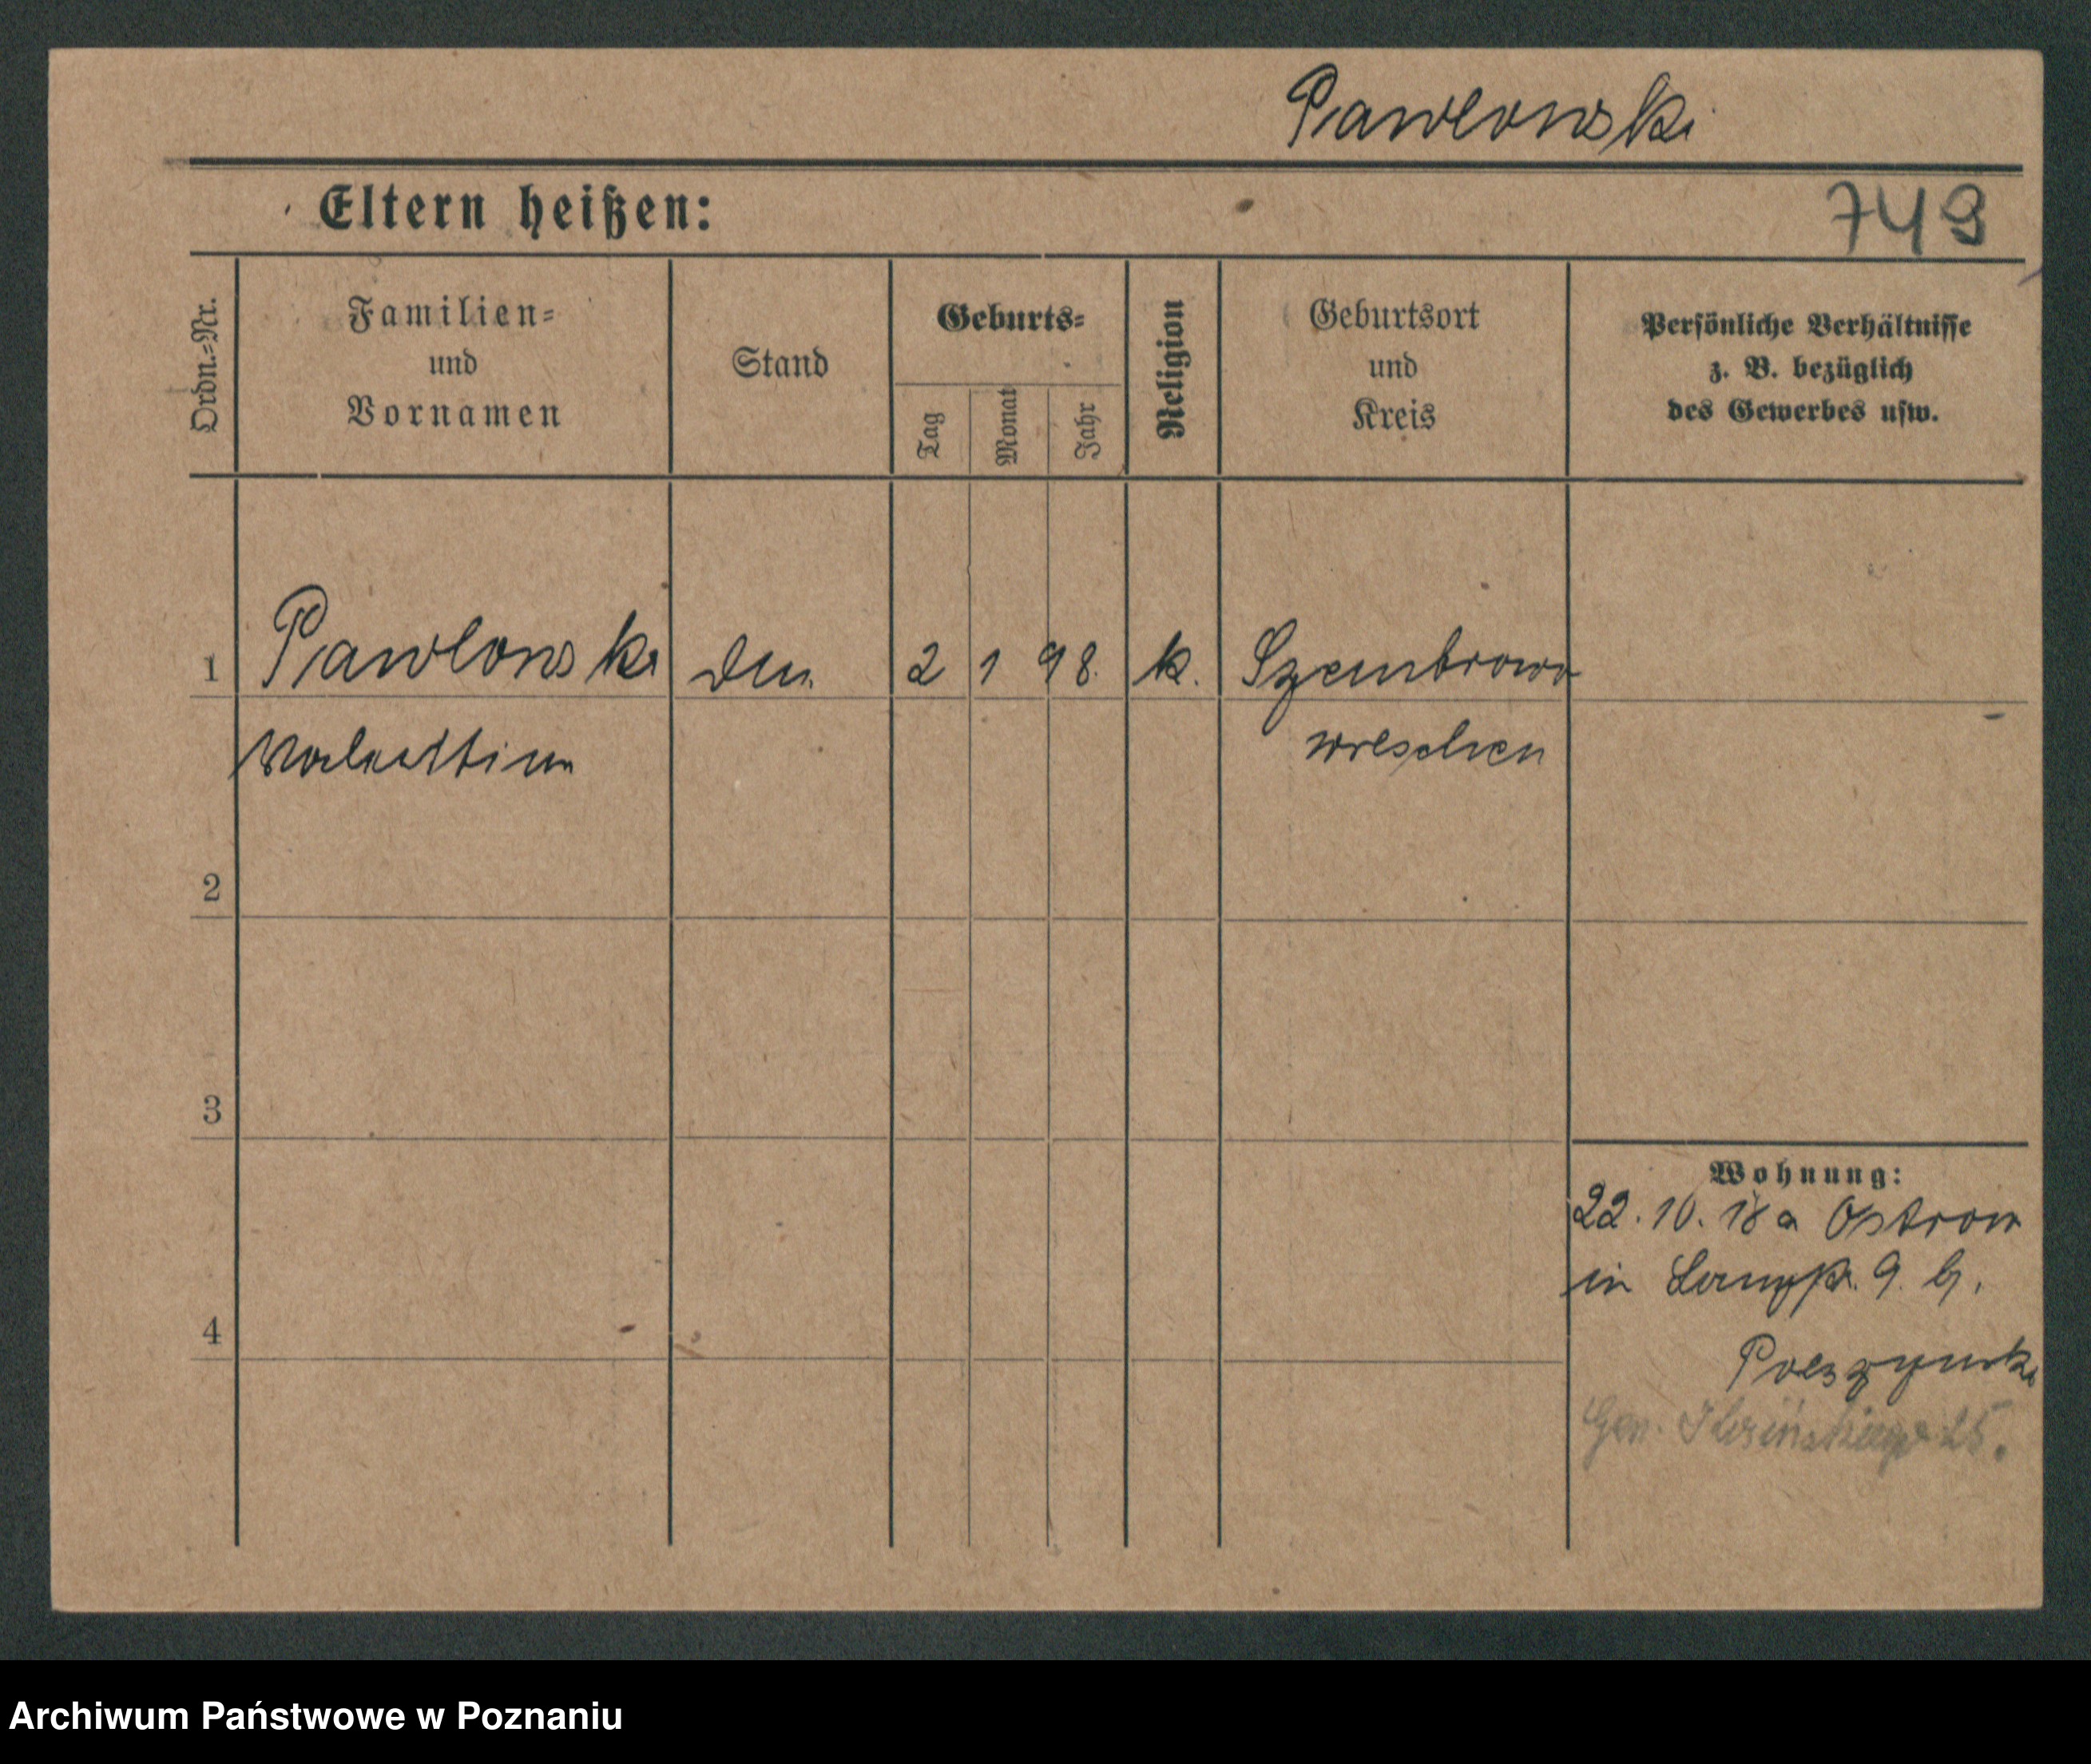 Pawlowski
Eltern heißen:
749
Ordn.=Nr.
Familien=
und
Vornamen
Stand
Geburts=
Tag
Monat
Jahr
Religion
Geburtsort
und
Kreis
Persönliche Verhältnisse
z. B. bezüglich
des Gewerbes usw.
1 Pawlowski 2 1 98. k. Szembrowo
Wreschen
2
3
4
Wohnung:
22. 10. 18 a Ostrow
in 9. b.
Gen. 25.
Archiwum Państwowe w Poznaniu